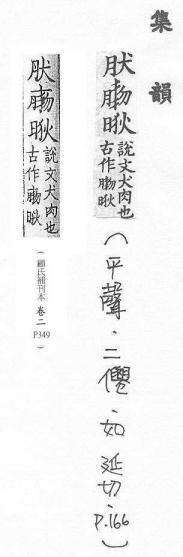 集韻
肰
說文犬肉也
古作
(平聲.二僊.如延切.P.166)
肰
說文犬肉也
古作
(顧氏補刊本 卷二 P349)